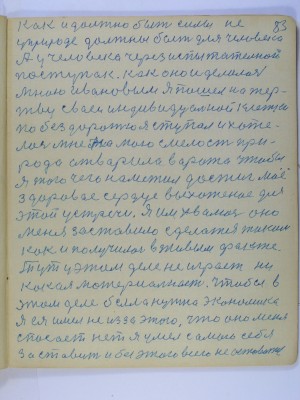 83
как и должно быть силы не
природе должны быть для человека
А у человека через испытательной
поступак. как оно и делалося
мною ивановым Я пошел на жер-
тву своей индивидуальной клетки
по бездорожию я ступал и хоте-
лося мне на мою смелост при-
рода отварила ворота чтобы
Я того чего наметил достиг моё
здоровае сердце выхоженае для
этой устречи. Я им хвалюся оно
меня заставило сделатся таким
как и получилося в живым факте.
Тут у этом деле не играет ни
какая материалност. Чтобы в
этом деле была нужна экономика
Я ея имел не из за этого, что оно меня
спасает нет я умел самого себя
заставит и без этого всего не